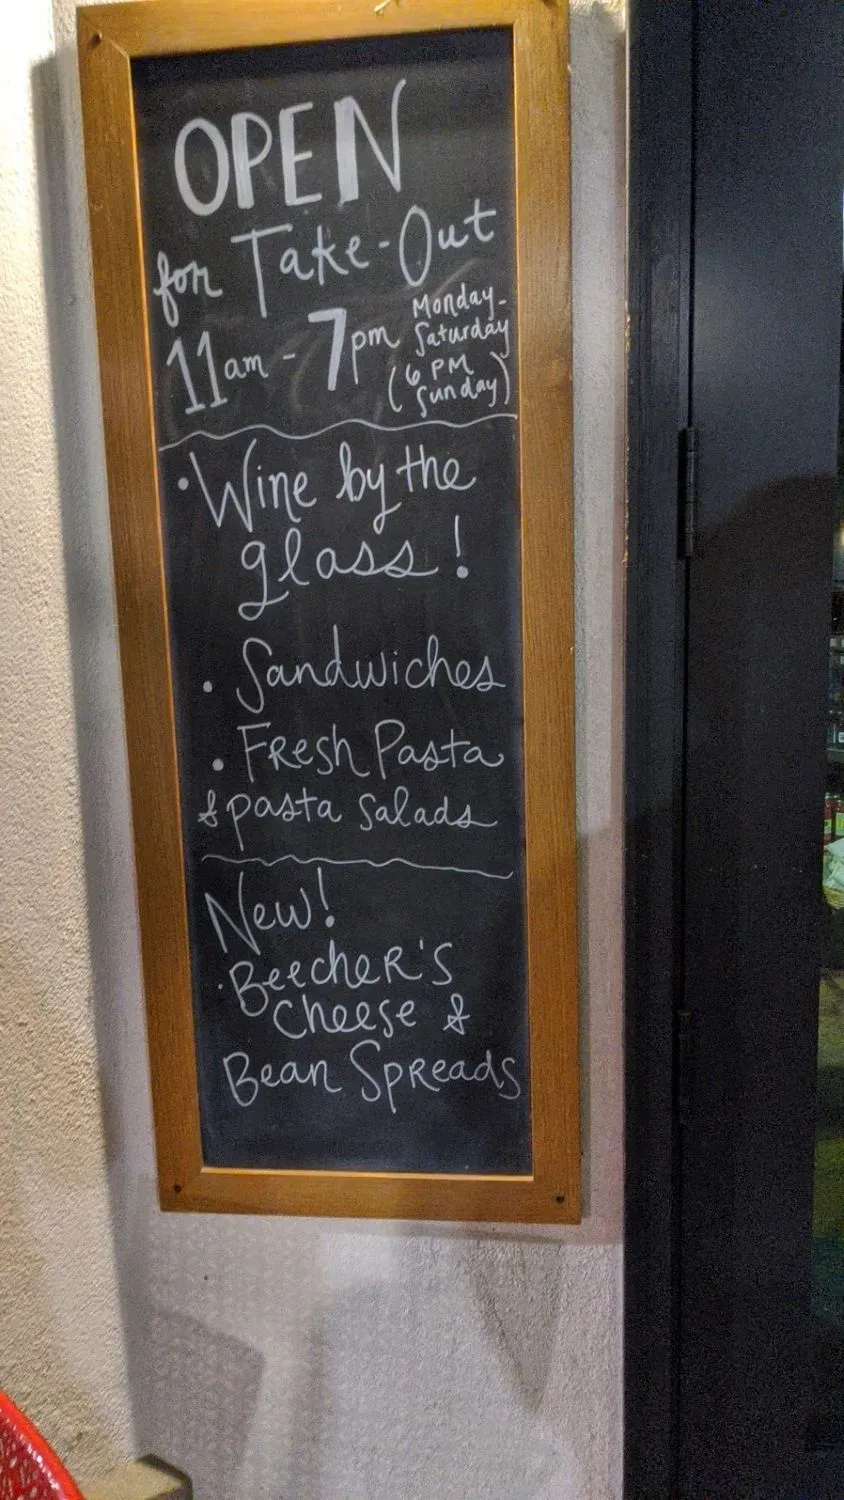 OPEN
for Take-Out
11am - 7pm Monday-
Saturday
(6 PM
Sunday)
• Wine by the
glass!
• Sandwiches
• Fresh Pasta
& pasta salads
New!
• Beecher's
Cheese &
Bean Spreads